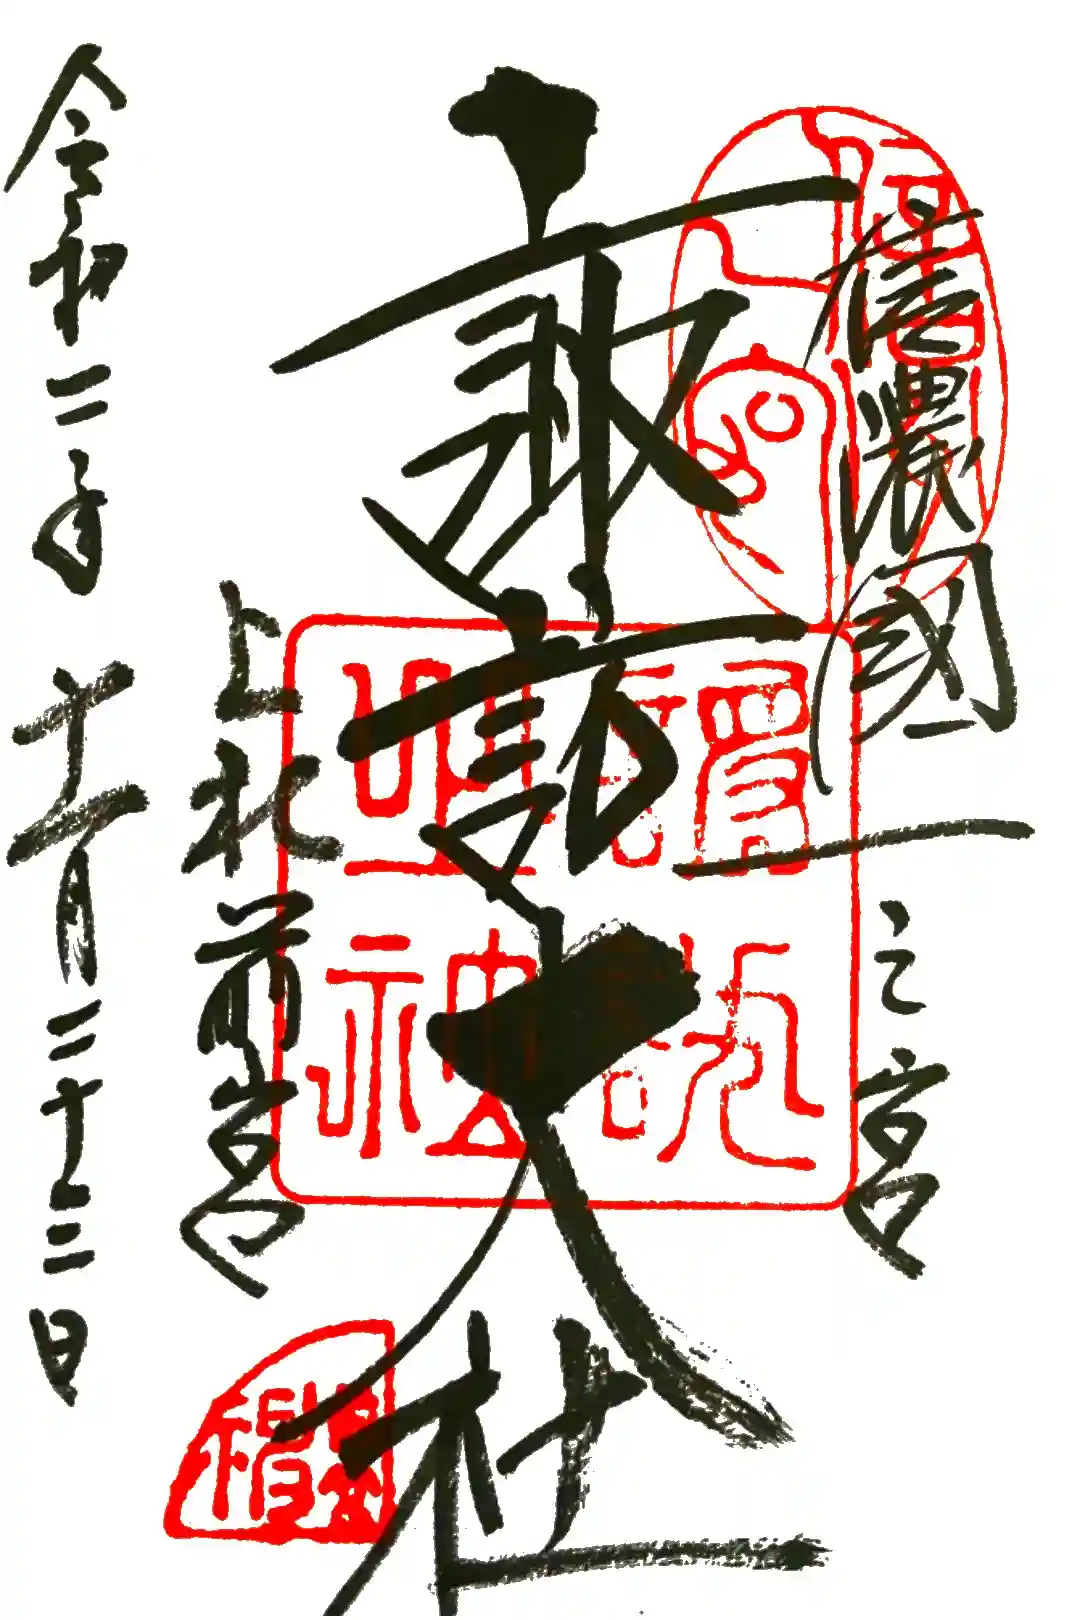 信濃國一之宮
諏訪大社
上社前宮
令和二年十一月二十三日